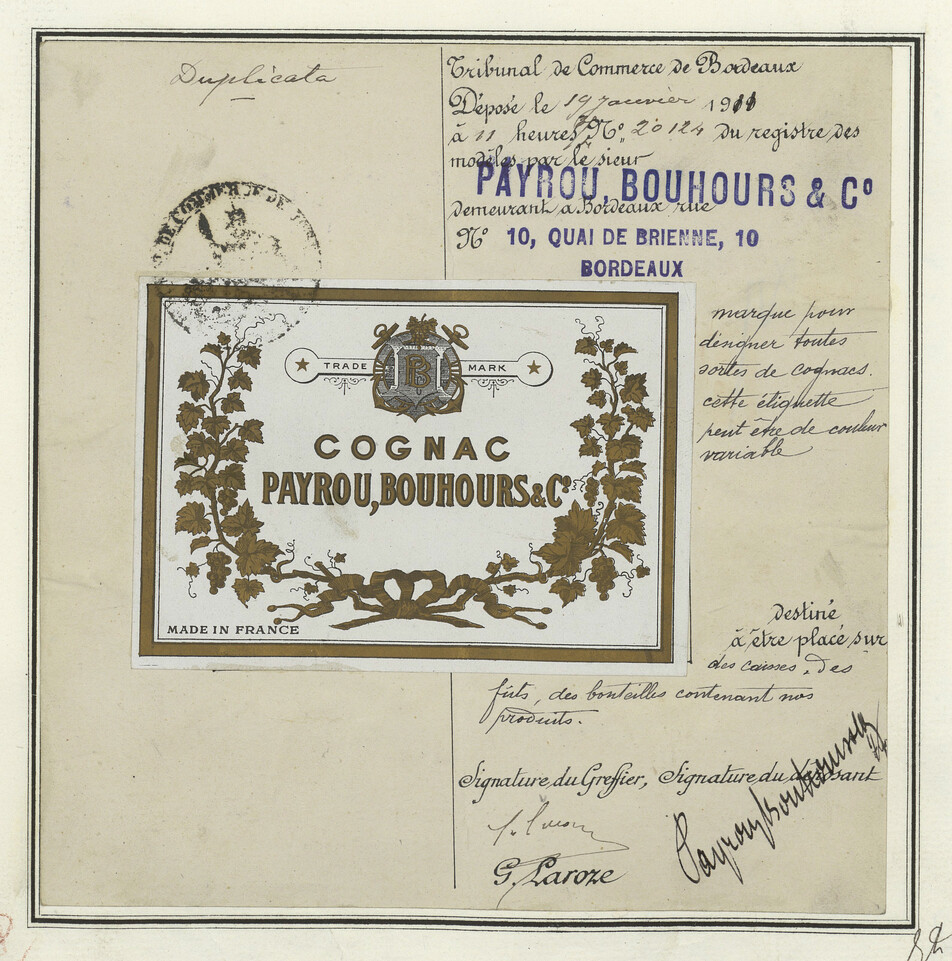 Duplicata
Tribunal de Commerce de Bordeaux
Déposé le 19 janvier 1911
à 11 heures Nº 20124 du registre des
modèles par le sieur
PAYROU, BOUHOURS & Cº
demeurant à Bordeaux rue
Nº 10, QUAI DE BRIENNE, 10
BORDEAUX
DE COMMERCE DE
TRADE MARK
PB
COGNAC
PAYROU, BOUHOURS & Cº
MADE IN FRANCE
marque pour
désigner toutes
sortes de cognacs.
cette étiquette
peut être de couleur
variable
destiné
à être placé sur
des caisses, des
fûts, des bouteilles contenant nos
produits.
Signature du Greffier, Signature du déposant
Payrou Bouhours & Cº
G. Laroze